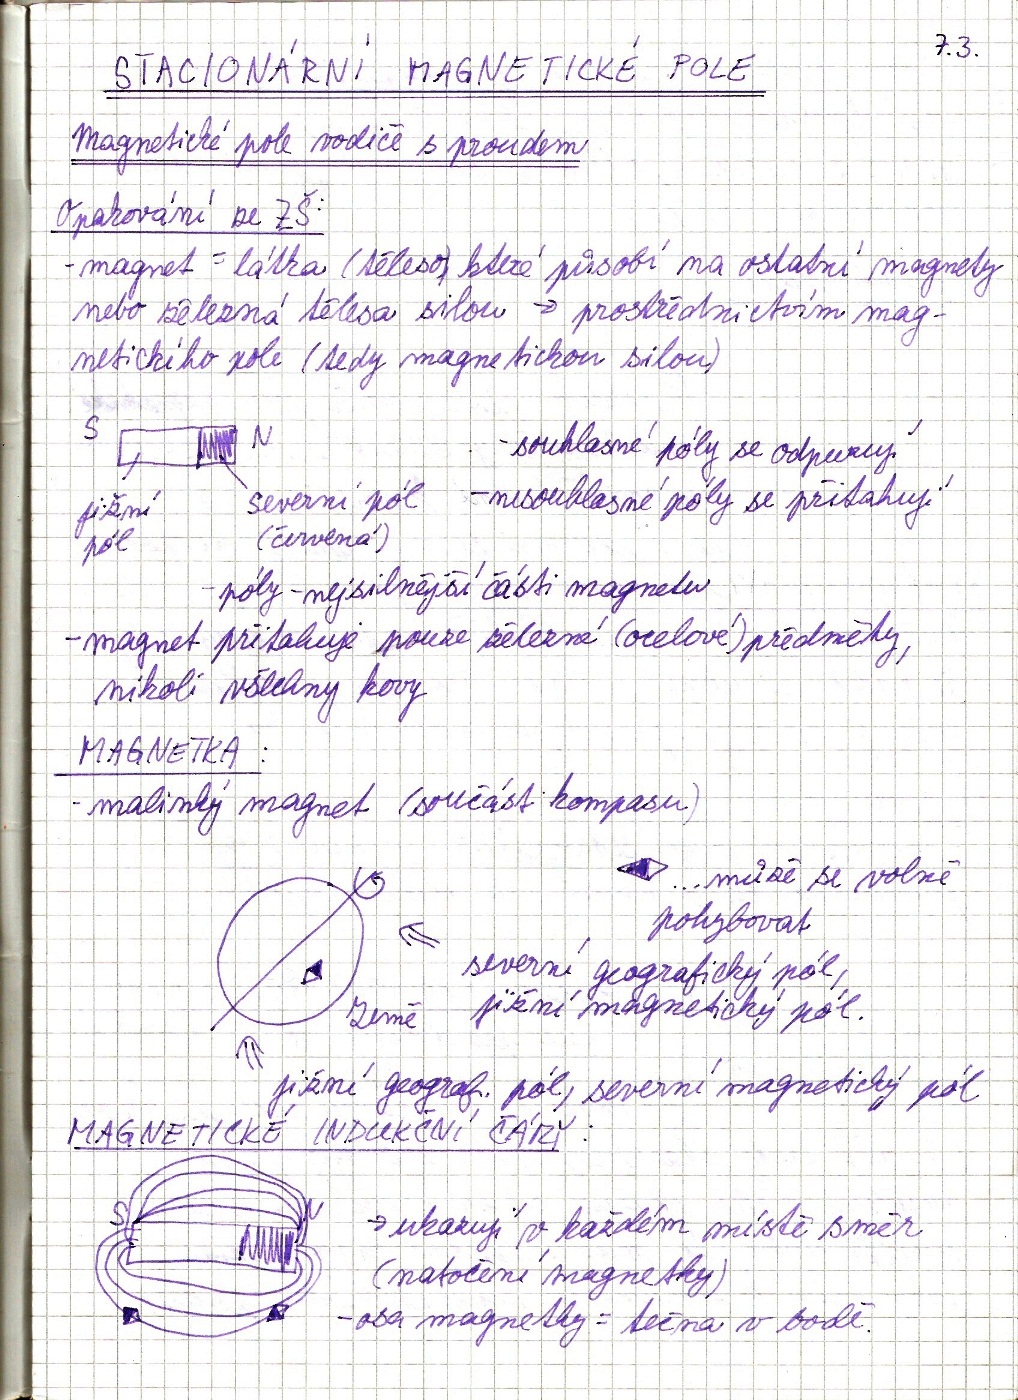 7.3.
STACIONÁRNÍ MAGNETICKÉ POLE
Magnetické pole vodiče s proudem
Opakování ze ZŠ:
-magnet = látka (těleso) které působí na ostatní magnety
nebo železná tělesa silou → prostřednictvím mag-
netického pole (tedy magnetickou silou)
S N
jižní pól
severní pól (červená)
-souhlasné póly se odpuzují
-nesouhlasné póly se přitahují
-póly -nejsilnější části magnetu
-magnet přitahuje pouze železné (ocelové) předměty,
nikoli všechny kovy
MAGNETKA:
-malinký magnet (součást kompasu)
...může se volně
pohybovat
severní geografický pól,
jižní magnetický pól.
Země
jižní geograf. pól, severní magnetický pól
MAGNETICKÉ INDUKČNÍ ČÁRY:
S N
→ukazují v každém místě směr
(natočení magnetky)
-osa magnetky = tečna v bodě.